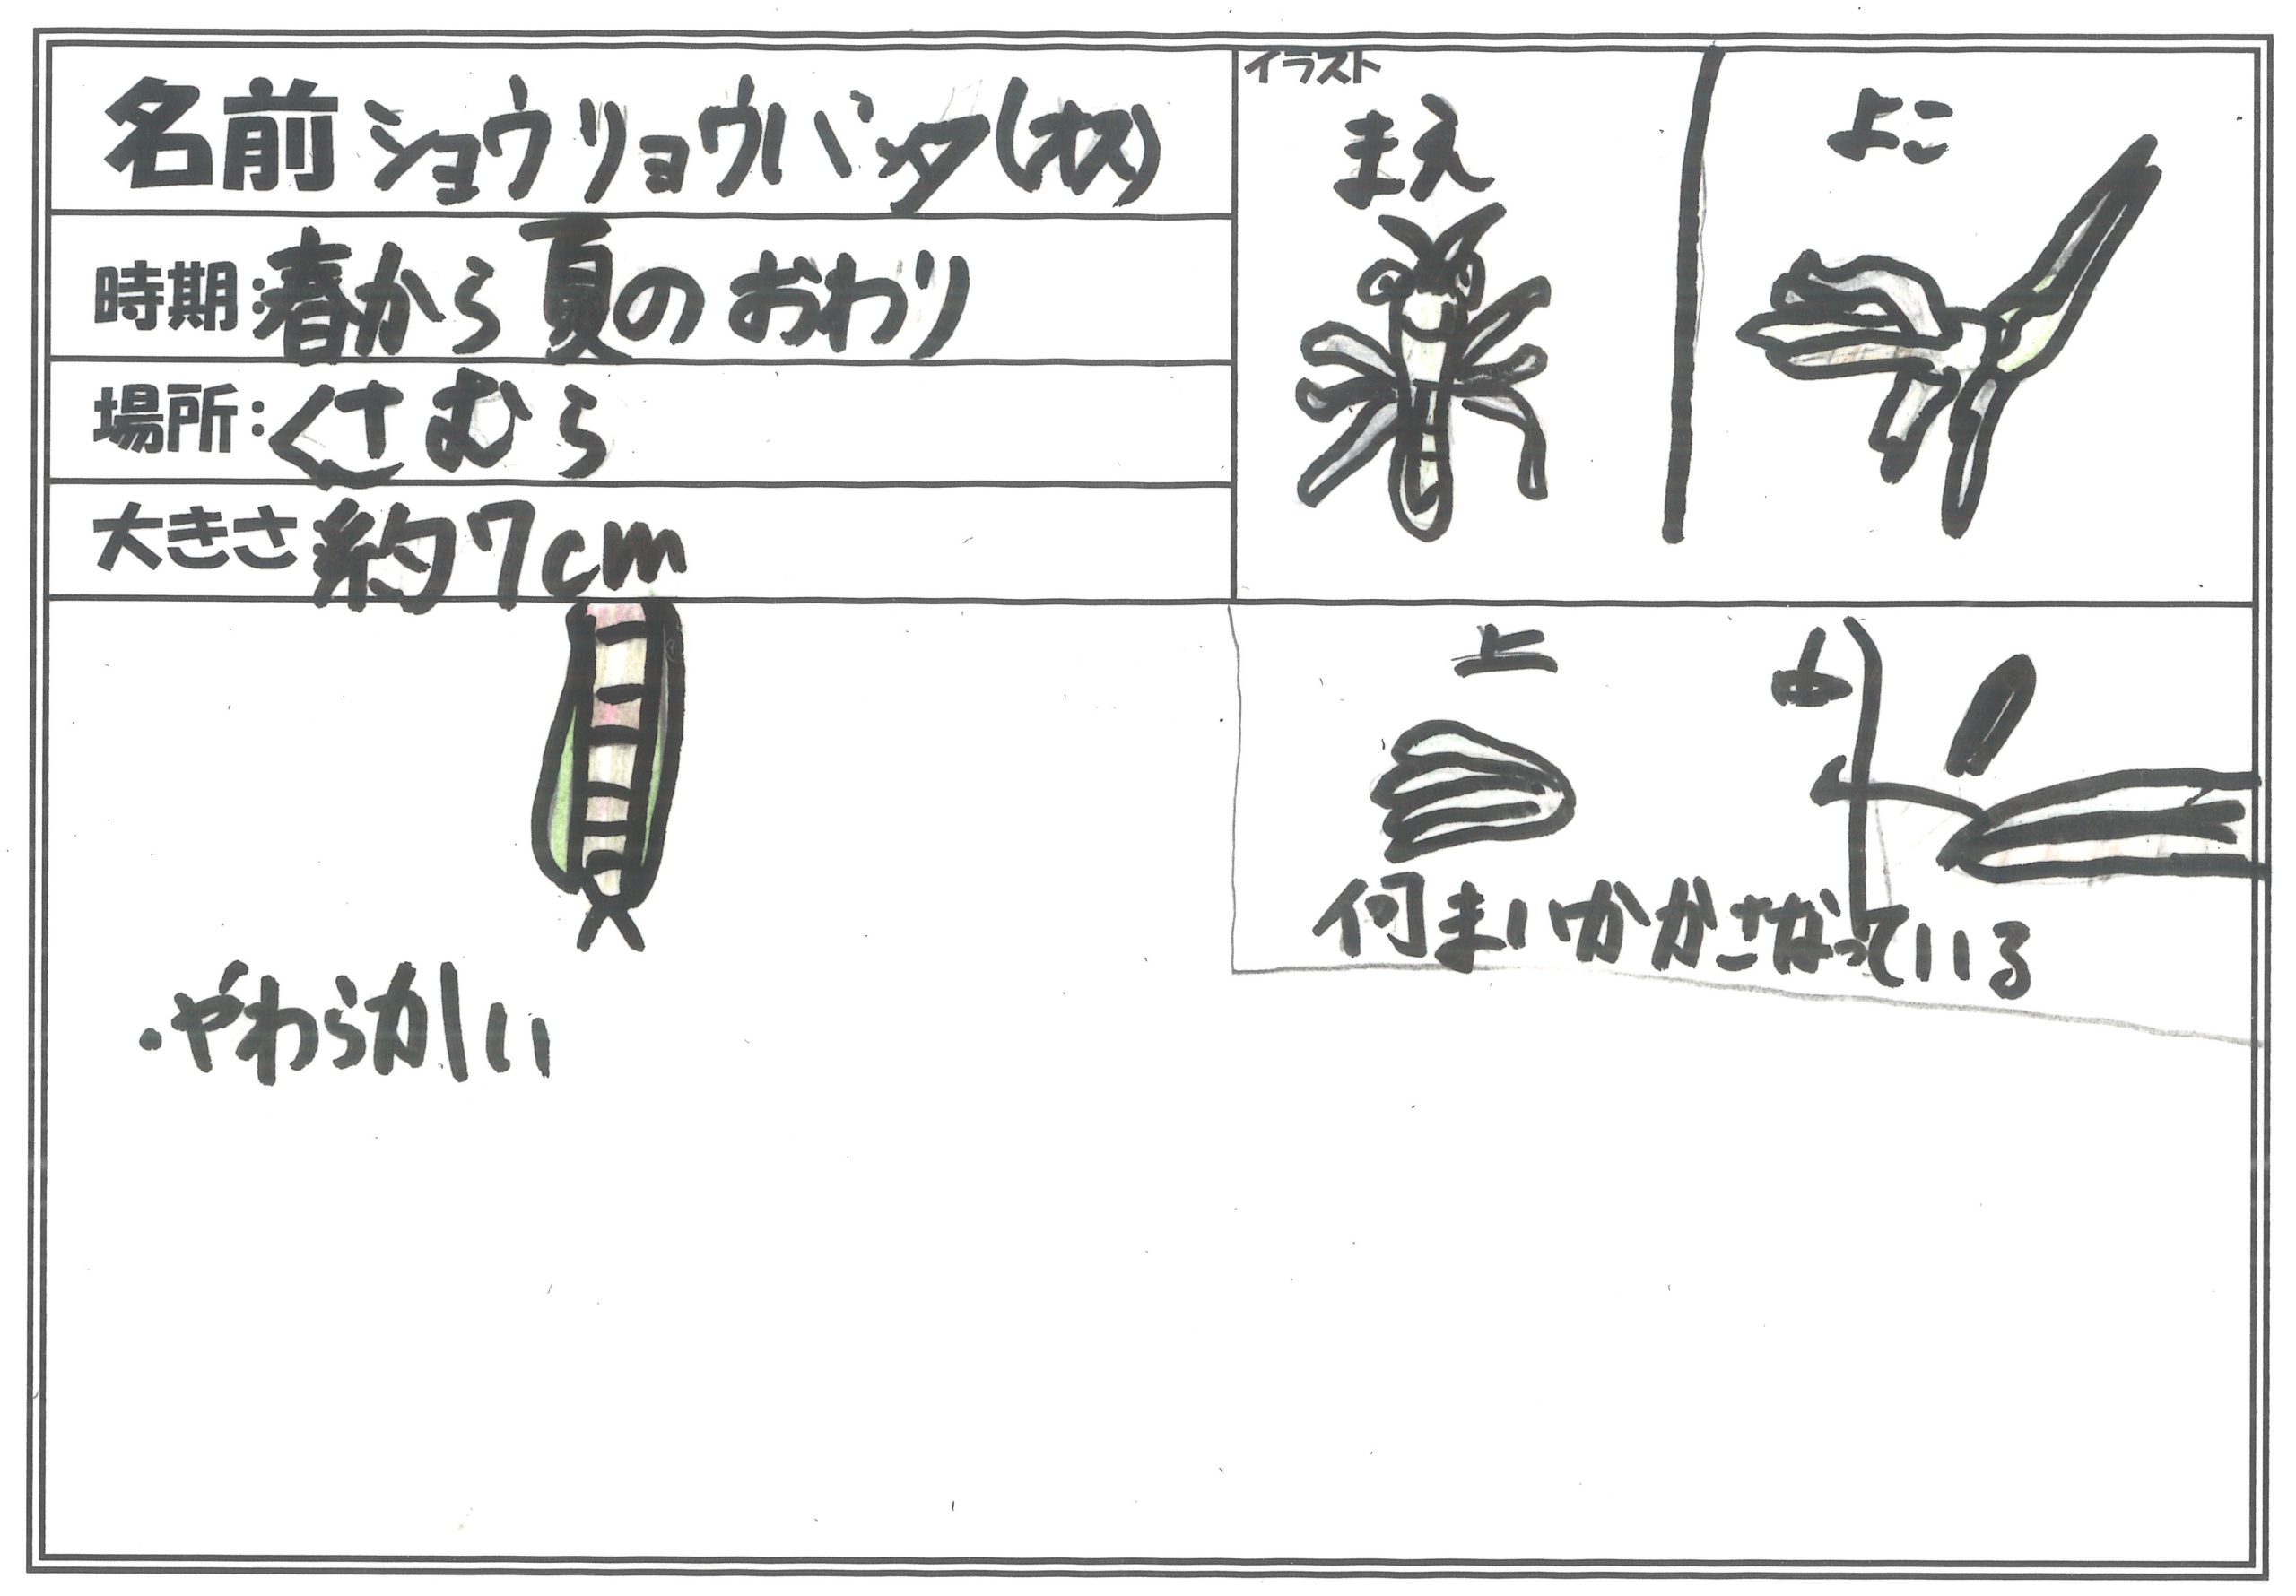 名前 ショウリョウバッタ(オス)
時期:春から夏のおわり
場所:くさむら
大きさ:約7cm
イラスト
まえ
よこ
上
中
何まいかかさなっている
・やわらかい